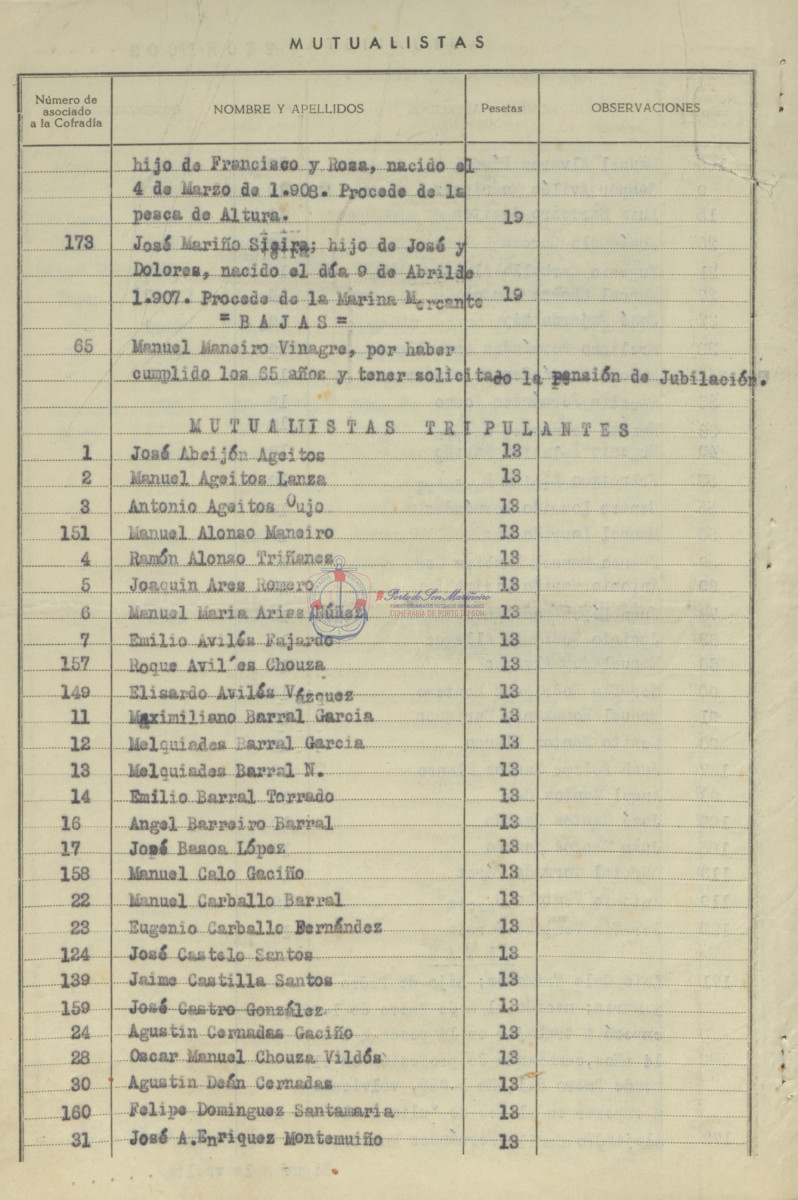 MUTUALISTAS
Número de asociado a la Cofradía NOMBRE Y APELLIDOS Pesetas OBSERVACIONES
hijo de Francisco y Rosa, nacido el
4 de Marzo de 1.908. Procede de la
pesca de Altura. 19
173 José Mariño Sieira; hijo de José y
Dolores, nacido el día 9 de Abrilde
1.907. Procede de la Marina Mercante 19
=BAJAS=
65 Manuel Maneiro Vinagre, por haber
cumplido los 65 años y tener solicitado la pensión de Jubilación.
MUTUALIISTAS TRIPULANTES
1 José Abeijón Ageitos 13
2 Manuel Ageitos Lanza 13
3 Antonio Ageitos Oujo 13
151 Manuel Alonso Maneiro 13
4 Ramón Alonso Triñanes 13
5 Joaquin Ares Romero 13
Porto do Son Mariñeiro
COFRARIA DE PORTO DO SON
6 Manuel Maria Arias Núñez 13
7 Emilio Avilés Fajardo 13
157 Roque Avil´es Chouza 13
149 Elisardo Avilés Vázquez 13
11 Maximiliano Barral Garcia 13
12 Melquiades Barral Garcia 13
13 Melquiades Barral N. 13
14 Emilio Barral Torrado 13
16 Angel Barreiro Barral 13
17 José Basoa López 13
158 Manuel Calo Gaciño 13
22 Manuel Carballo Barral 13
23 Eugenio Carballo Fernández 13
124 José Castelo Santos 13
139 Jaime Castilla Santos 13
159 José Castro González 13
24 Agustin Cernadas Gaciño 13
28 Oscar Manuel Chouza Vildós 13
30 Agustin Deán Cernadas 13
160 Felipe Dominguez Santamaria 13
31 José A.Enriquez Montemuiño 13